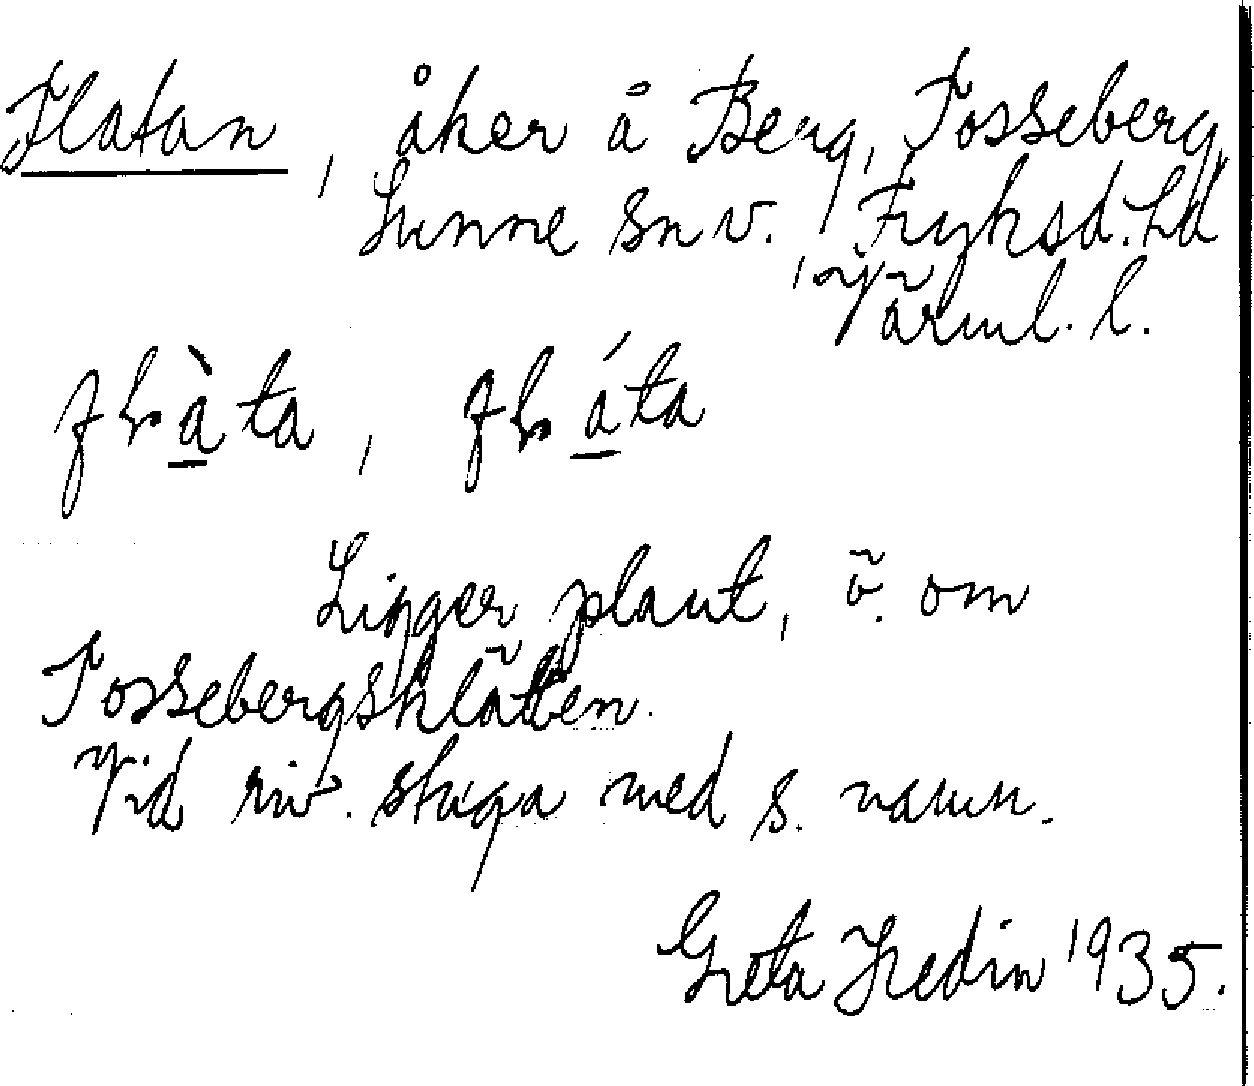 Flatan, åker å Berg, Tosseberg,
Sunne sn v. Fryksd. hd
Värml. l.
Ligger plant, ö. om
Tossebergsklätten.
Vid riv. stuga med s. namn.
Greta Hedin 1935.